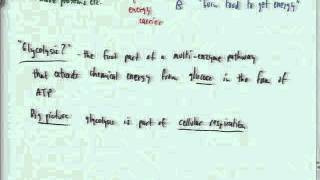 have proteins etc.
energy carrier
B "burn food to get energy"
"Glycolysis?" - the first part of a multi-enzyme pathway
that extracts chemical energy from glucose in the form of
ATP
Big picture: glycolysis is part of cellular respiration.